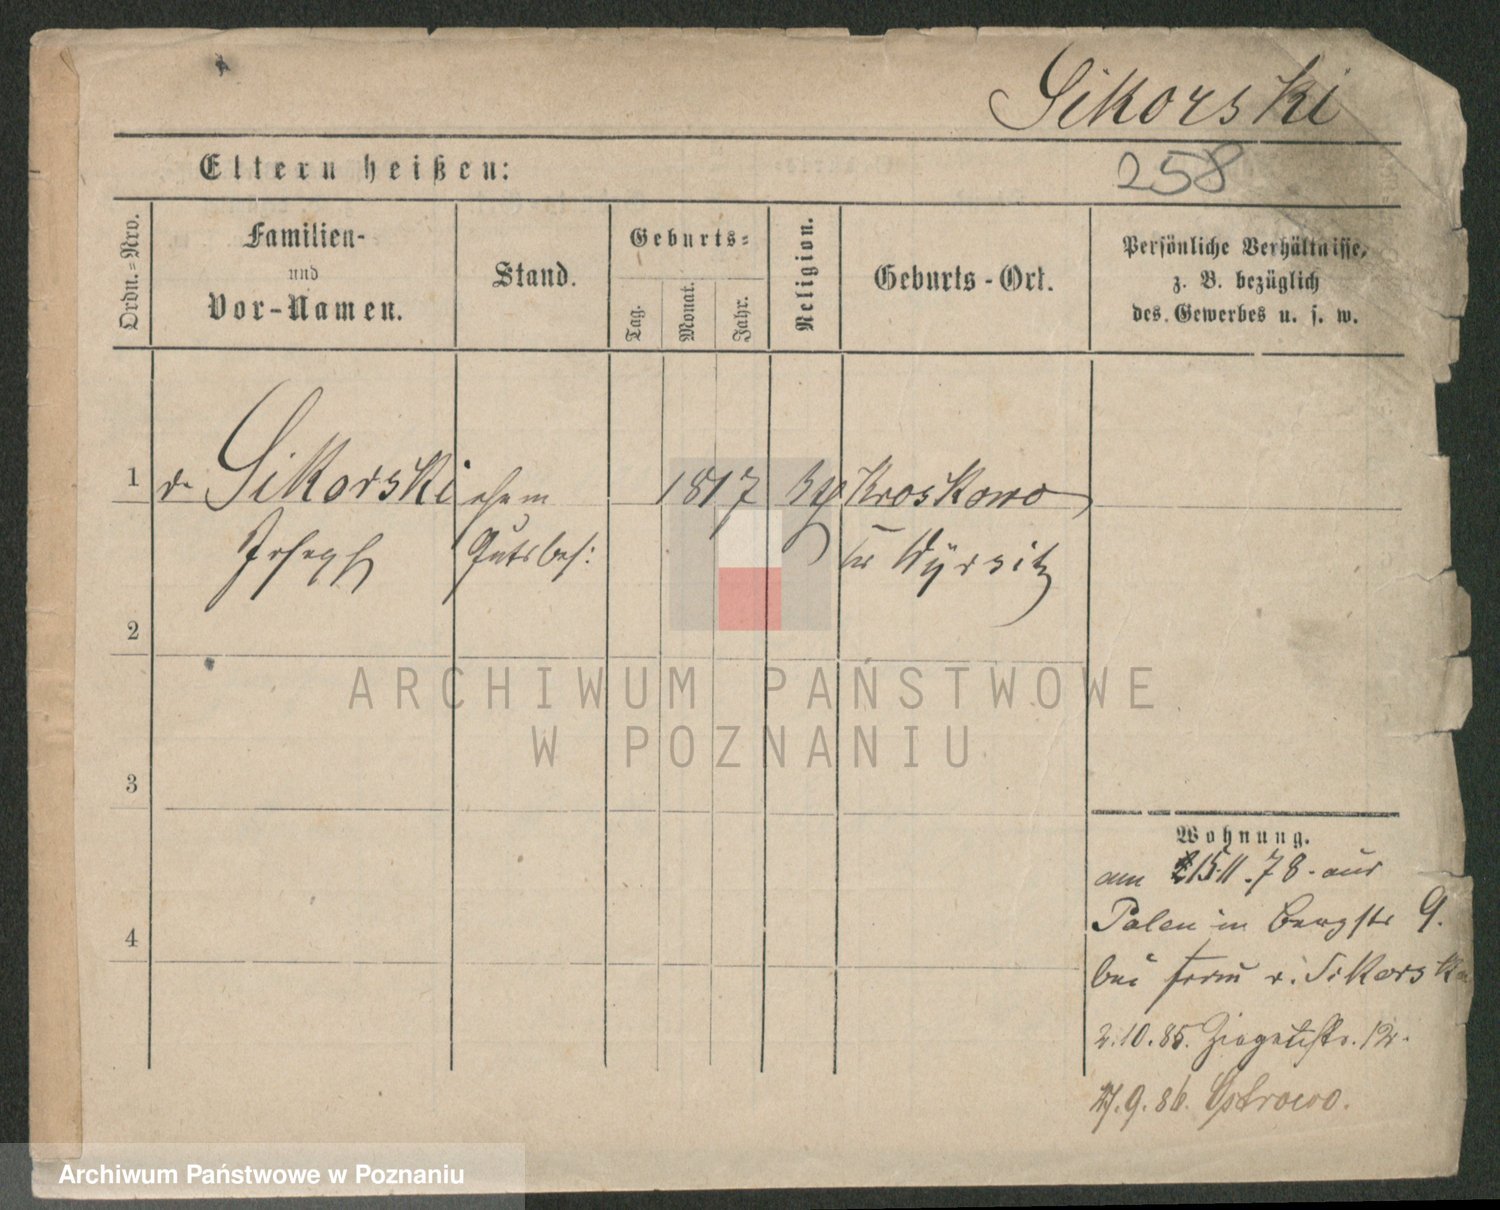 Sikorski
258
Eltern heißen:
Ordn.-Nro.
Familien-
und
Vor-Namen.
Stand.
Geburts-
Tag.
Monat.
Jahr.
Religion.
Geburts-Ort.
Persönliche Verhältnisse,
z. B. bezüglich
des Gewerbes u. s. w.
1
v. Sikorski
Joseph
ehem
Gutsbes:
1817
Kroskowo
Kr Wyrsitz
2
3
4
Wohnung.
am 15.11.78. aus
Polen in Bergstr 9.
bei v. Sikorska
2.10.85. Ziegelstr. 12.
27.9.86. Ostrowo.
ARCHIWUM PAŃSTWOWE
W POZNANIU
Archiwum Państwowe w Poznaniu